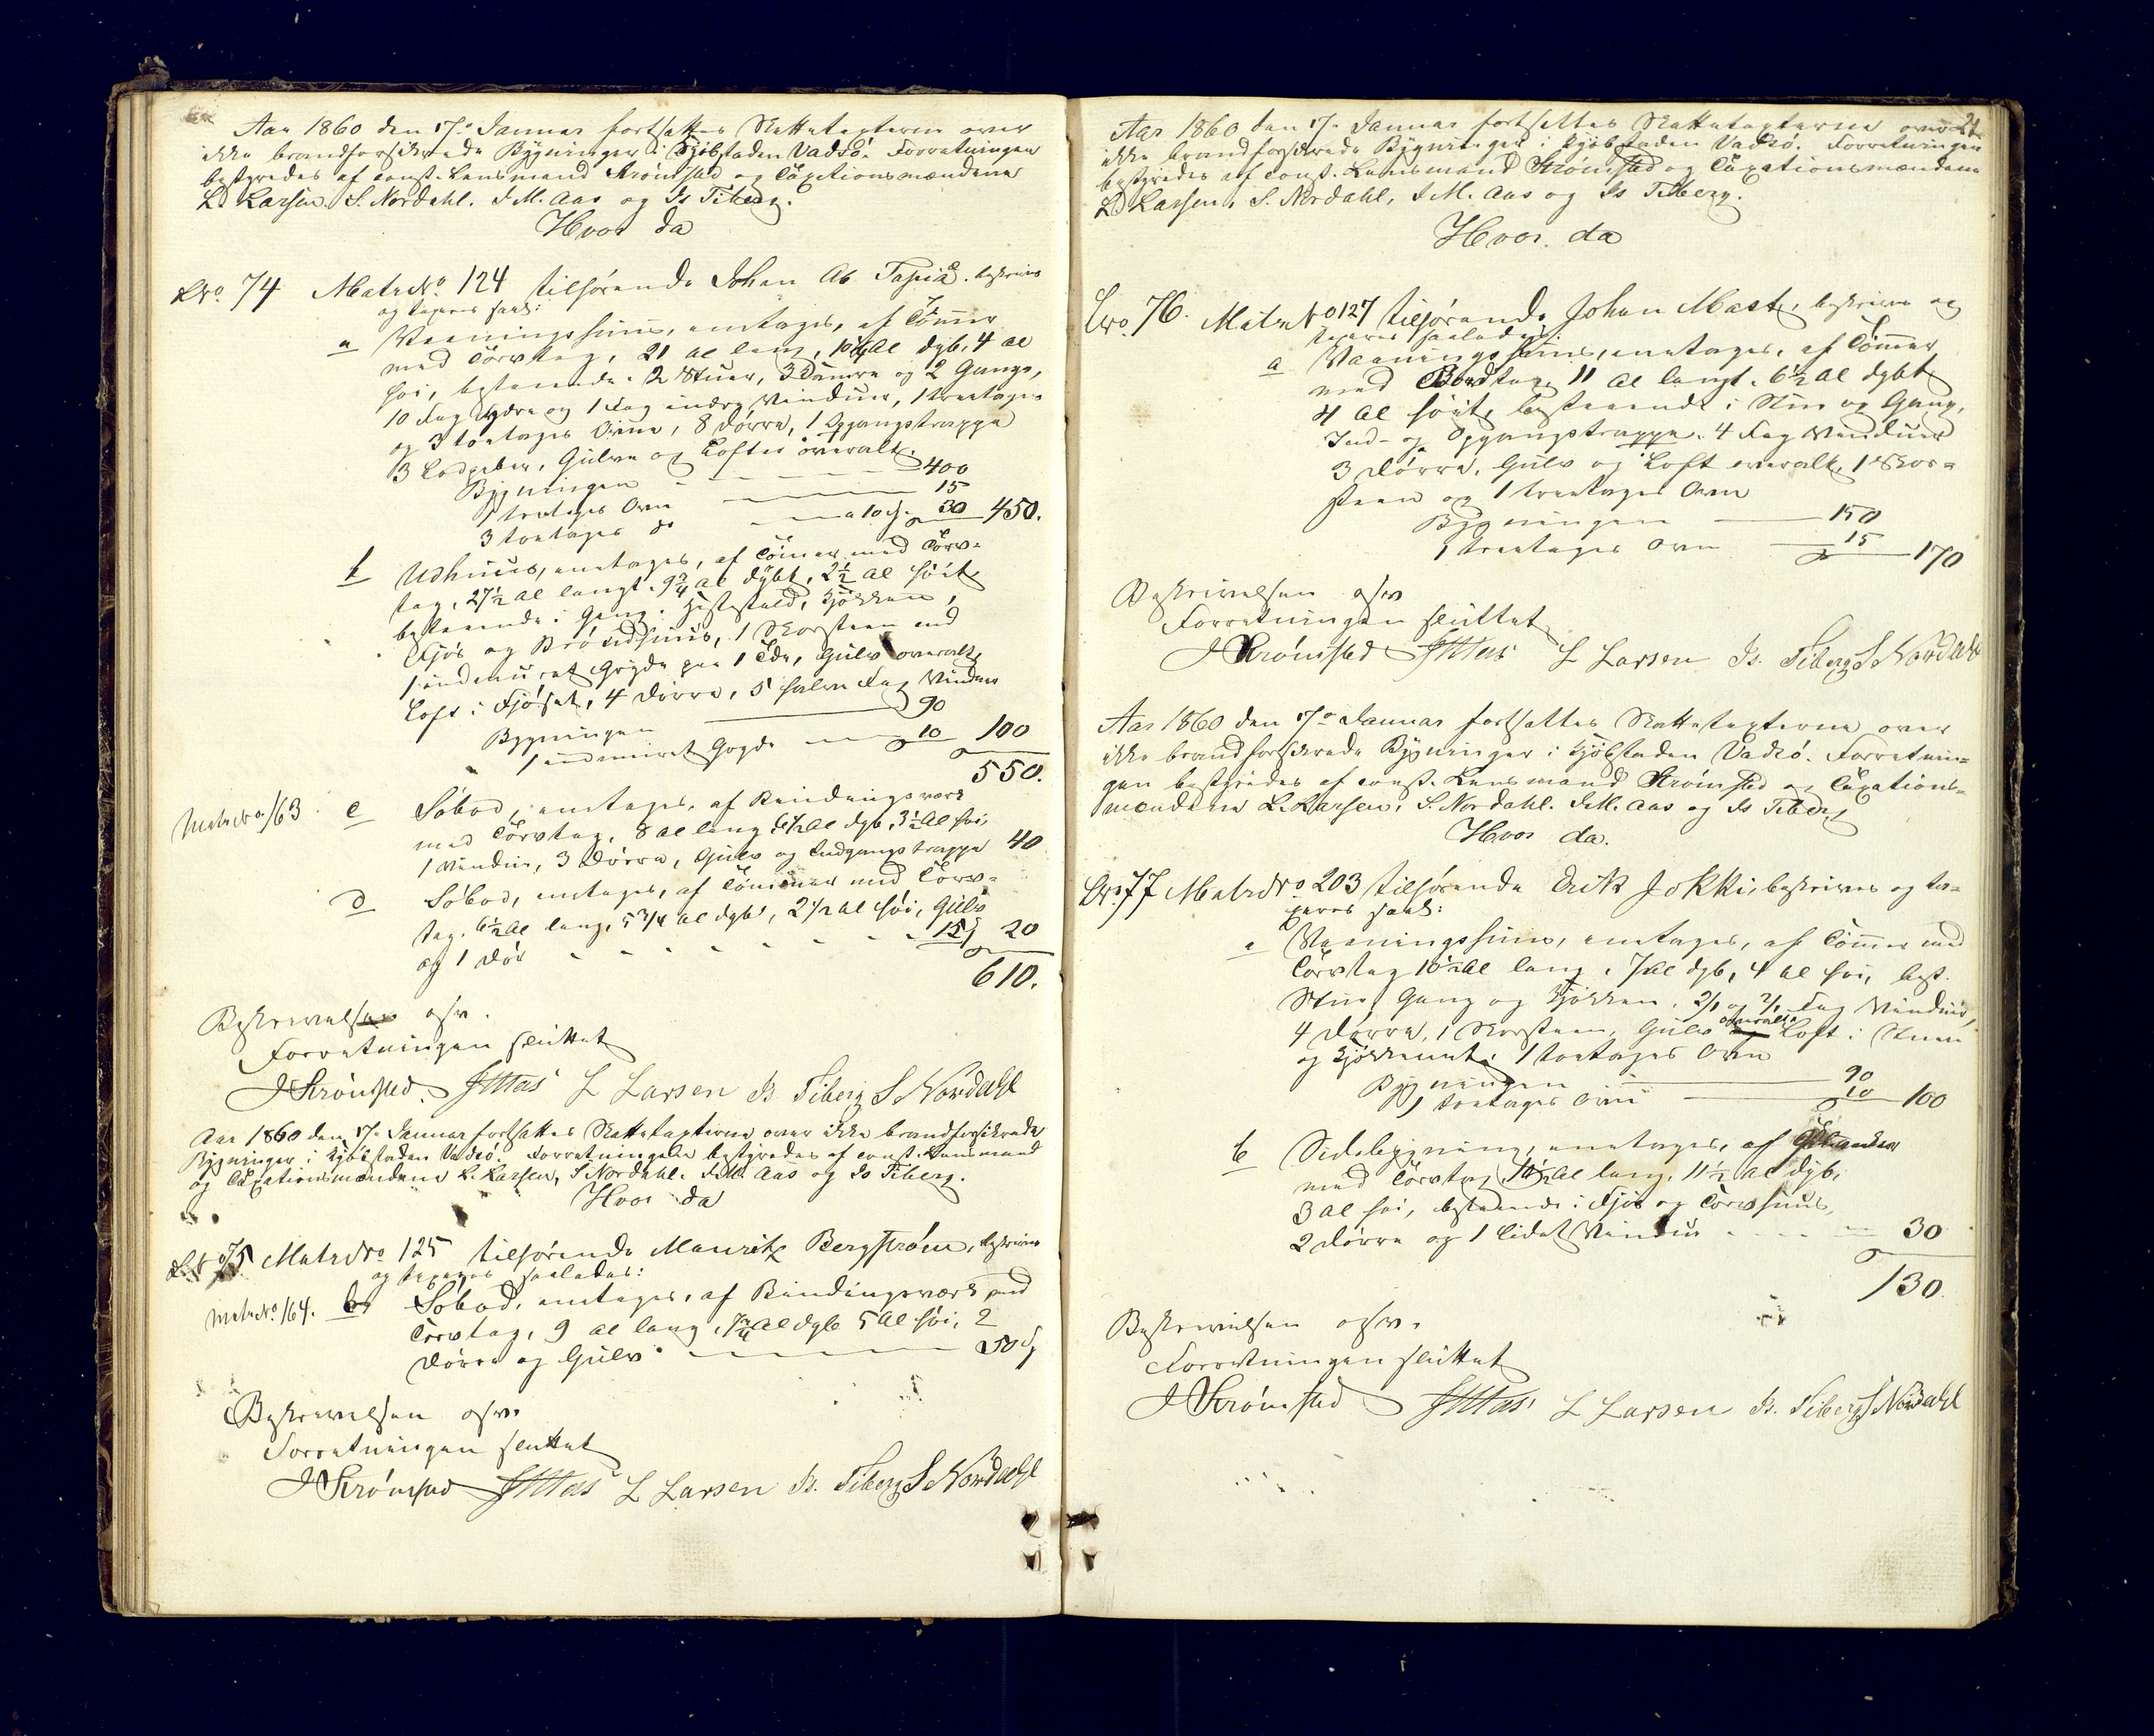 Aar 1860 den 17de Januar fortsattes Skattetaxterne over
ikke brandforsikrede Bygninger i Kjøbstaden Vadsø. Forretningen
bestyredes af const. Lensmand Strømsted og Taxationsmændene
L. Larsen, S. Nordahl, J. M. Aas og Is Tiberg.
Hvor da
LNo. 74 Matr.No. 124 tilhørende Johan Ab Tapia, beskrives
og taxeres saal:
a Vaaningshuus, eenetages, af Tømmer
med Tørvtag, 21 Al lang, 10¼ Al dyb, 4 Al
høi, bestaaende i 2 Stuer, 3 Kamre og 2 Gange,
10 Fag større og 1 Fag mindre Vinduer, 1 treetages
og 3 toetages Ovne, 8 Dørre, 1 Opgangstrappe
3 Gulve og Lofter overalt.
Bygningen 400
1 treetages Ovn 15
3 toetages do a 10 30 450.
b Udhuus, eenetages, af Tømmer med Tørv-
tag, 27½ Al langt, 9¾ Al dybt, 2½ Al høit
bestaaende i Gang, Hestestald, Kjøkken,
Fjøs og Brøndhuus, 1 Skorsteen med
1 indmuret Gryde paa 1 Tde, Gulv overalt,
Loft i Fjøset, 4 Dørre, 5 halve Fag Vinduer
Bygningen 90
1 indmuret Gryde 10 100
550.
Matr.No. 163. c Søbod, eenetages, af Bindingsværk
med Tørvtag, 8 Al lang, 6½ Al dyb, 3½ Al høi,
1 Vindue, 3 Dørre, Gulv og Indgangstrappe 40
d Søbod, eenetages, af Tømmer med Tørv-
tag, 6½ Al lang, 5¾ Al dyb, 2½ Al høi, Gulv
og 1 Dør 20
610.
Beskrivelsen osv.
Forretningen sluttet
J Strømsted. JMAas L Larsen Is. Tiberg S Nordahl
Aar 1860 den 17de Januar fortsattes Skattetaxterne over ikke brandforsikrede
Bygninger i Kjøbstaden Vadsø. Forretningen bestyredes af const. Lensmand
og Taxationsmændene L. Larsen, S Nordahl, J.M. Aas og Is Tiberg.
Hvor da
LNo 75 Matr.No. 125 tilhørende Mauritz Bergstrøm, beskrives
og taxeres saaledes:
Matr.No. 164. Søbod, eenetages, af Bindingsværk med
Tørvtag, 9 Al lang, 7¾ Al dyb 5 Al høi, 2
Dørre og Gulv 50
Beskrivelsen osv.
Forretningen sluttet
J Strømsted JMAas L Larsen Is. Tiberg S Nordahl
21.
Aar 1860 den 17de Januar fortsattes Skattetaxterne over
ikke brandforsikrede Bygninger i Kjøbstaden Vadsø. Forretningen
bestyredes af const. Lensmand Strømsted og Taxationsmændene
L Larsen, S. Nordahl, J.M. Aas og Is Tiberg.
Hvor da
LNo. 76. Matr.No 127 tilhørende Johan Mast, beskrives og
taxeres saaledes:
a Vaaningshuus, eenetages, af Tømmer
med Bordtag 11 Al langt, 6½ Al dybt
4 Al høit, bestaaende i Stue og Gang,
Ind- og Opgangstrappe, 4 Fag Vinduer
3 Dørre, Gulv og Loft overalt, 1 Skor-
steen og 1 treetages Ovn
Bygningen
1 treetages Ovn 15 170
Beskrivelsen osv
Forretningen sluttet
J Strømsted JMAas L Larsen Is. Tiberg S Nordahl
Aar 1860 den 17de Januar fortsattes Skattetaxterne over
ikke brandforsikrede Bygninger i Kjøbstaden Vadsø. Forretnin-
gen bestyredes af const. Lensmand Strømsted og Taxations-
mændene L. Larsen, S. Nordahl, J.M. Aas og Is Tiberg
Hvor da.
LNo 77 Matr.No 203 tilhørende Erik Jokki, beskrives og ta-
xeres saal:
a Vaaningshuus, eenetages, af Tømmer med
Tørvtag 10½ Al lang, 7 Al dyb, 4 Al høi, best.
Stue, Gang og Kjøkken, 2/1 og 2/1 Fag Vinduer,
4 Dørre, 1 Skorsteen, Gulv overalt Loft i Stuen
og Kjøkkenet, 1 toetages Ovn
Bygningen 90
1 toetages Ovn 10 100
b Sidebygning, eenetages, af
med Tørvtag Al lang, 11½ Al dyb,
3 Al høi, bestaaende i Fjøs og Tørvhuus,
2 Dørre og 1 lidet Vindue 30
130.
Beskrivelsen osv.
Forretningen sluttet
J Strømsted JMAas L Larsen Is. Tiberg S Nordahl